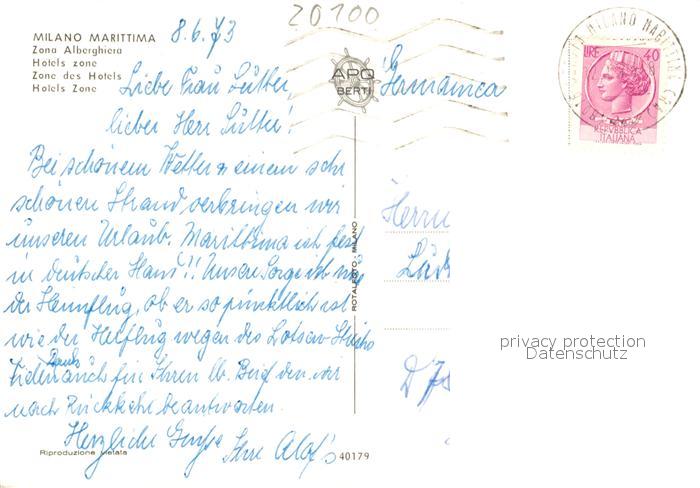 20100
MILANO MARITTIMA
Zona Alberghiera
Hotels zone
Zone des Hotels
Hotels Zone
8.6.73
APO
BERTI
Germania
LIRE 40
REPVBBLICA
ITALIANA
MILANO MARITTIMA
Liebe Frau
lieber Herr
Bei schönem Wetter & einem sehr
schönen Strand verbringen wir
unseren Urlaub. Marittima ist fest
in deutscher Hand!! Unsere Sorge ist nur
der Heimflug, ob er so pünktlich ist
wie der Hinflug wegen des Lotsen-Streiks
Vielen Dank auch für Ihren lb. Brief den wir
nach Rückkehr beantworten.
Herzliche Grüße Ihre
Herrn
D 75
ROTALFOTO - MILANO
Riproduzione vietata
40179
privacy protection
Datenschutz